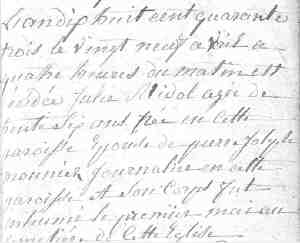 L'an dix huit cent quarante
trois le vingt neuf avril a
quatre heures du matin est
Julie agée de
sept ans née en cette
paroisse Epouse de pierre
journalier en cette
paroisse Et son corps fut
inhumé le premier mai au
cimetière de Cette Eglise